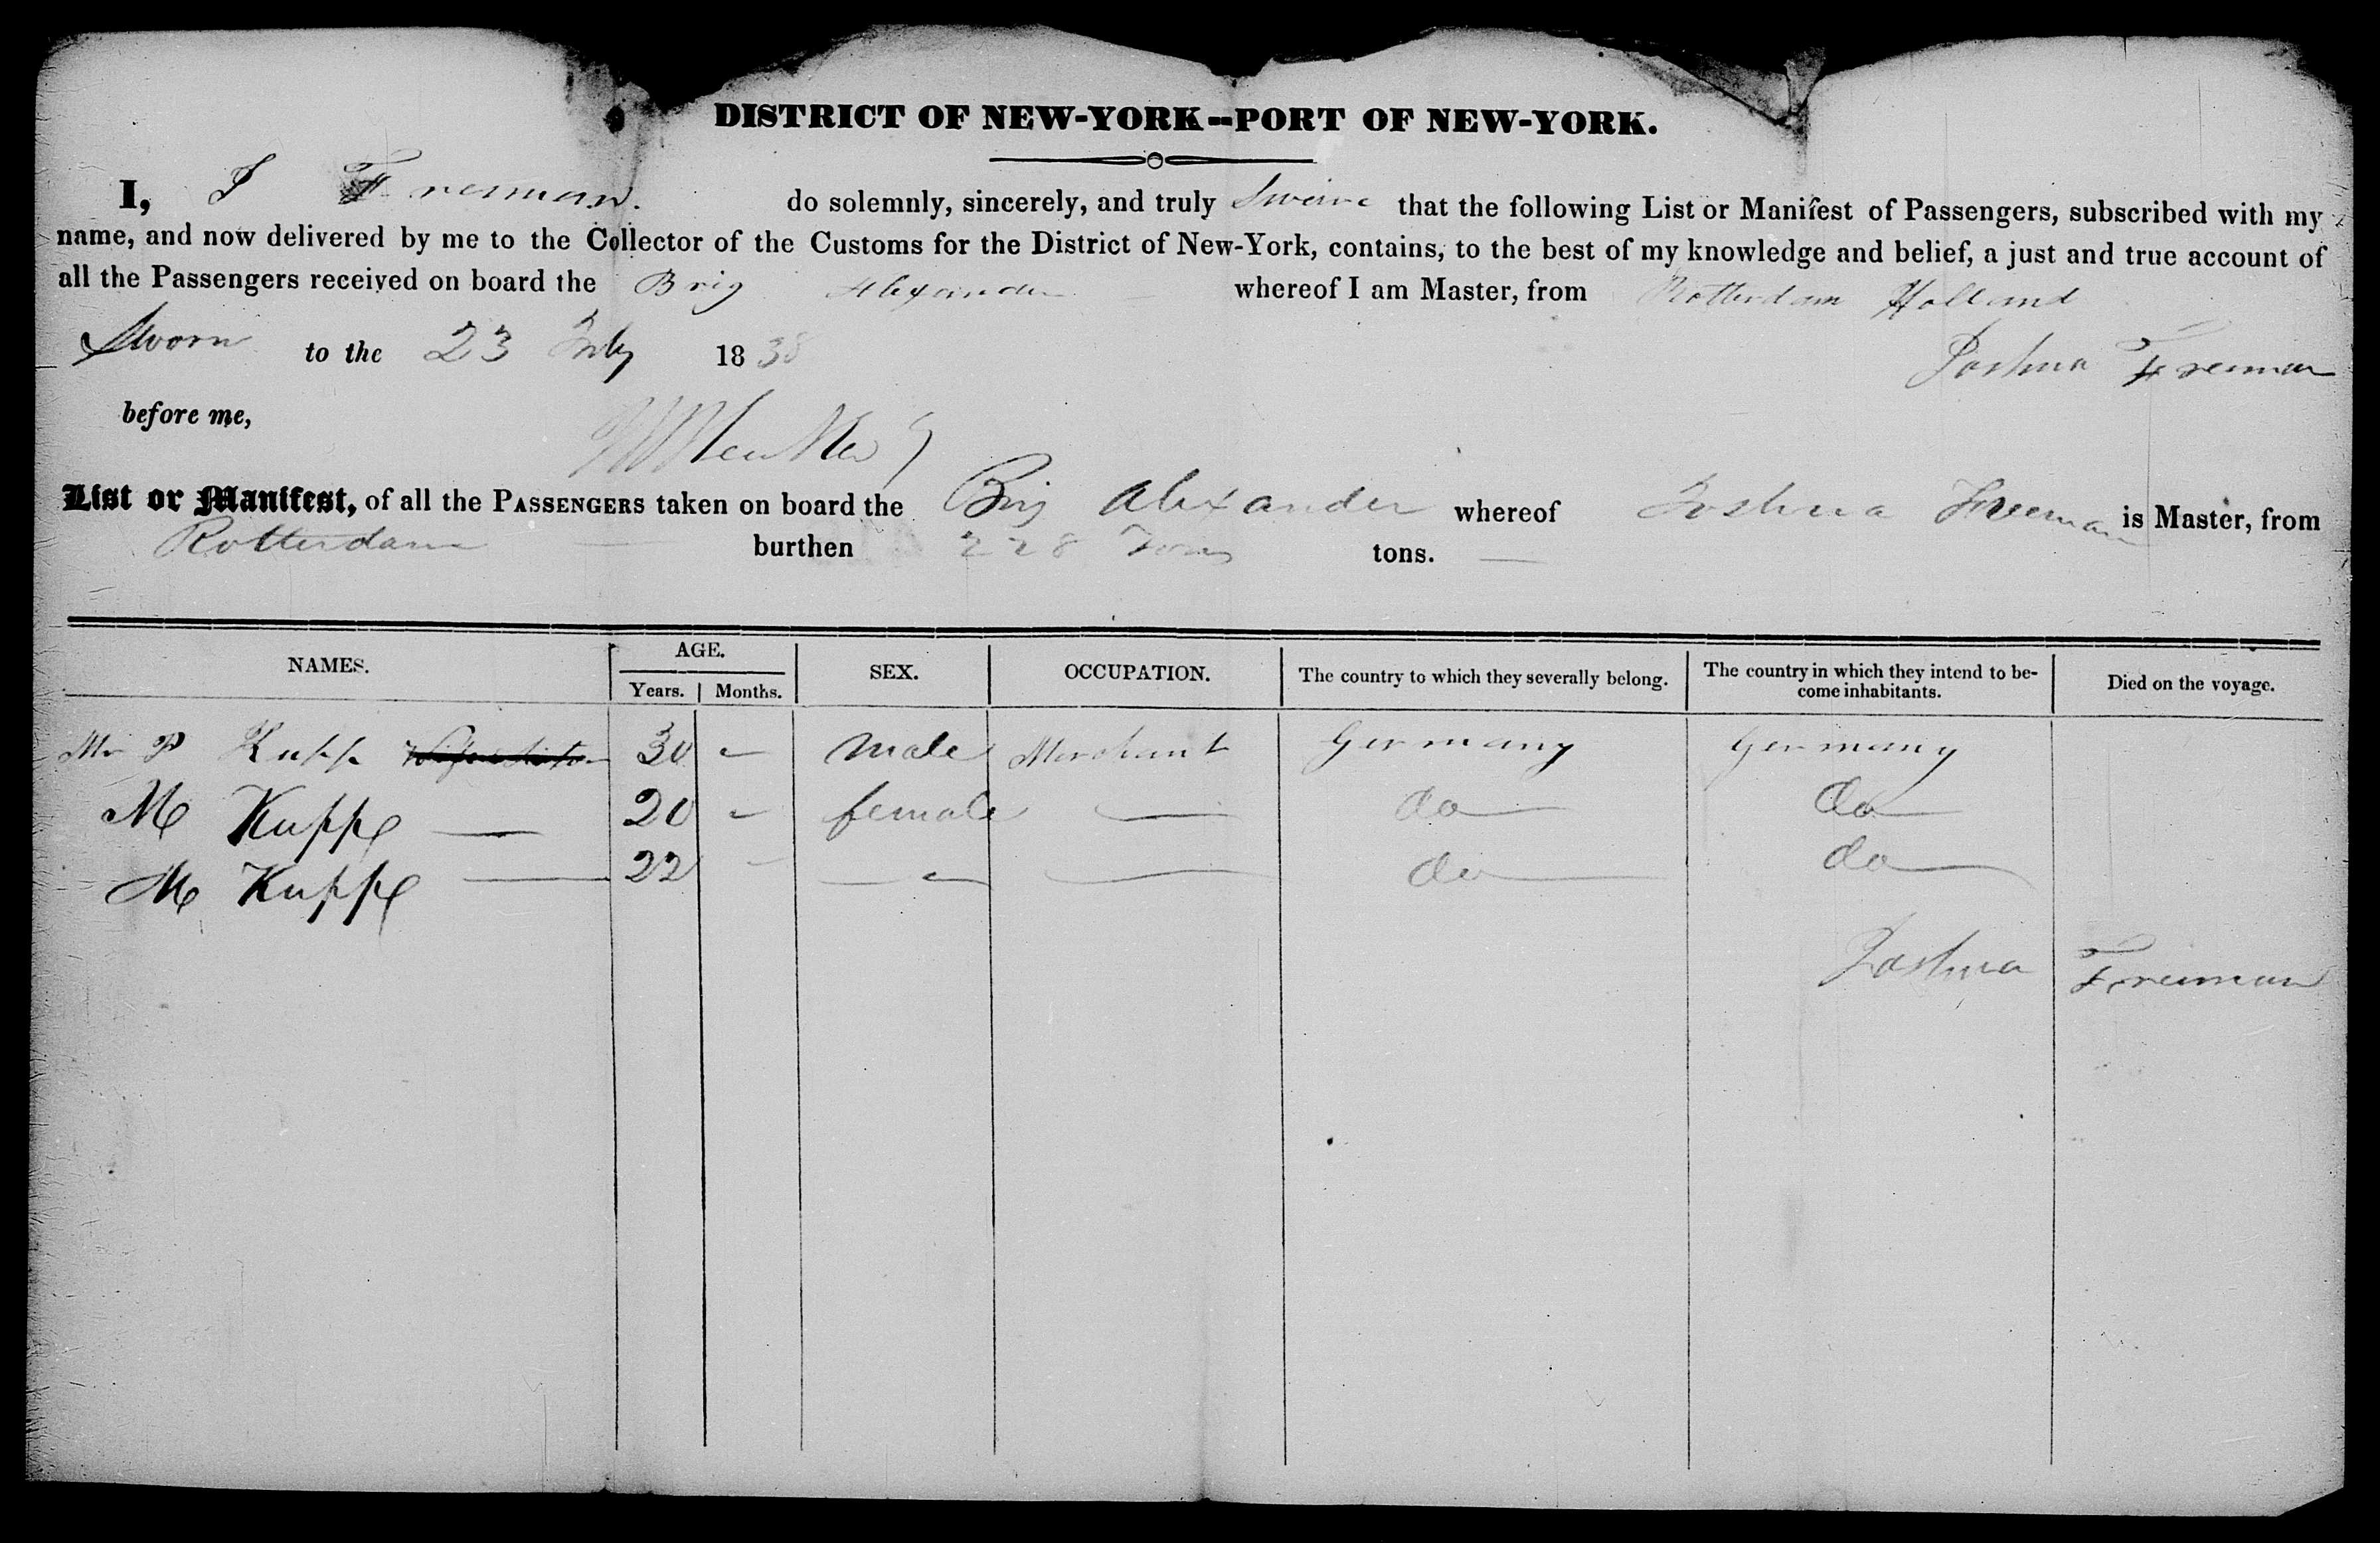 DISTRICT OF NEW-YORK--PORT OF NEW-YORK.
I, J Freeman. do solemnly, sincerely, and truly that the following List or Manifest of Passengers, subscribed with my
name, and now delivered by me to the Collector of the Customs for the District of New-York, contains, to the best of my knowledge and belief, a just and true account of
all the Passengers received on board the Brig Alexander whereof I am Master, from Rotterdam Holland
Sworn to the 23 July 1838 Joshua Freeman
before me,
List or Manifest, of all the PASSENGERS taken on board the Brig Alexander whereof Joshua Freeman is Master, from
Rotterdam burthen 228 Tons tons.
NAMES. AGE. Years. Months. SEX. OCCUPATION. The country to which they severally belong. The country in which they intend to become inhabitants. Died on the voyage.
Mr P Kupp 30 - male Merchant Germany Germany
M Kuppe — 20 - female — do — do —
M Kuppe — 22 - — — do — do —
Joshua Freeman